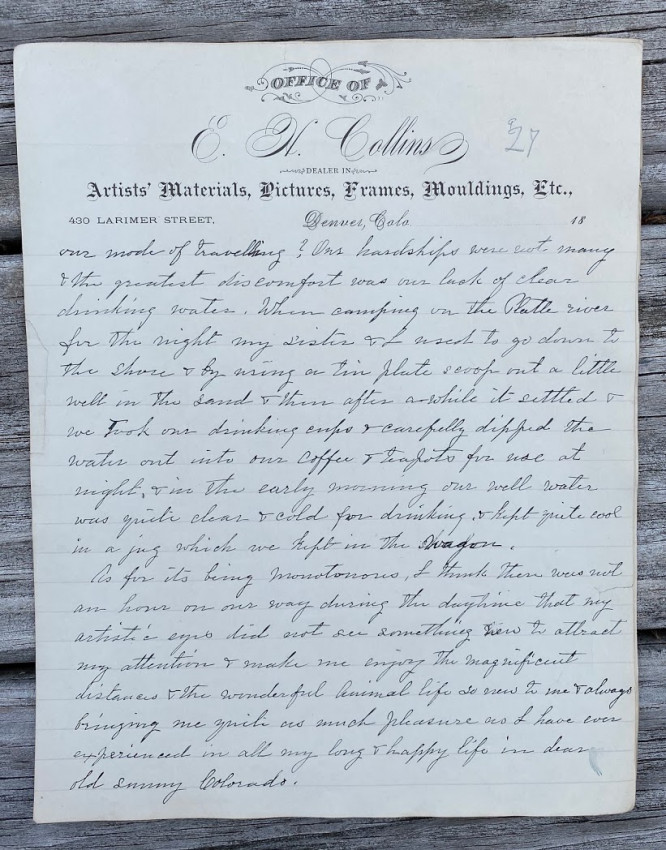 OFFICE OF
E. H. Collins
27
DEALER IN
Artists' Materials, Pictures, Frames, Mouldings, Etc.,
430 LARIMER STREET,
Denver, Colo 18
our mode of travelling? Our hardships were not many
& the greatest discomfort was our lack of clear
drinking water. When camping on the Platte river
for the night my sister & I used to go down to
the shore & by using a tin plate scoop out a little
well in the sand & then after a while it settled &
we took our drinking cups & carefully dipped the
water out into our coffee & teapots for use at
night, & in the early morning our well water
was quite clear & cold for drinking, & kept quite cool
in a jug which we kept in the wagon.
As for its being monotonous, I think there was not
an hour on our way during the daytime that my
artistic eyes did not see something new to attract
my attention & make me enjoy the magnificent
distances & the wonderful animal life so new to me & always
bringing me quite as much pleasure as I have ever
experienced in all my long & happy life in dear
old sunny Colorado.